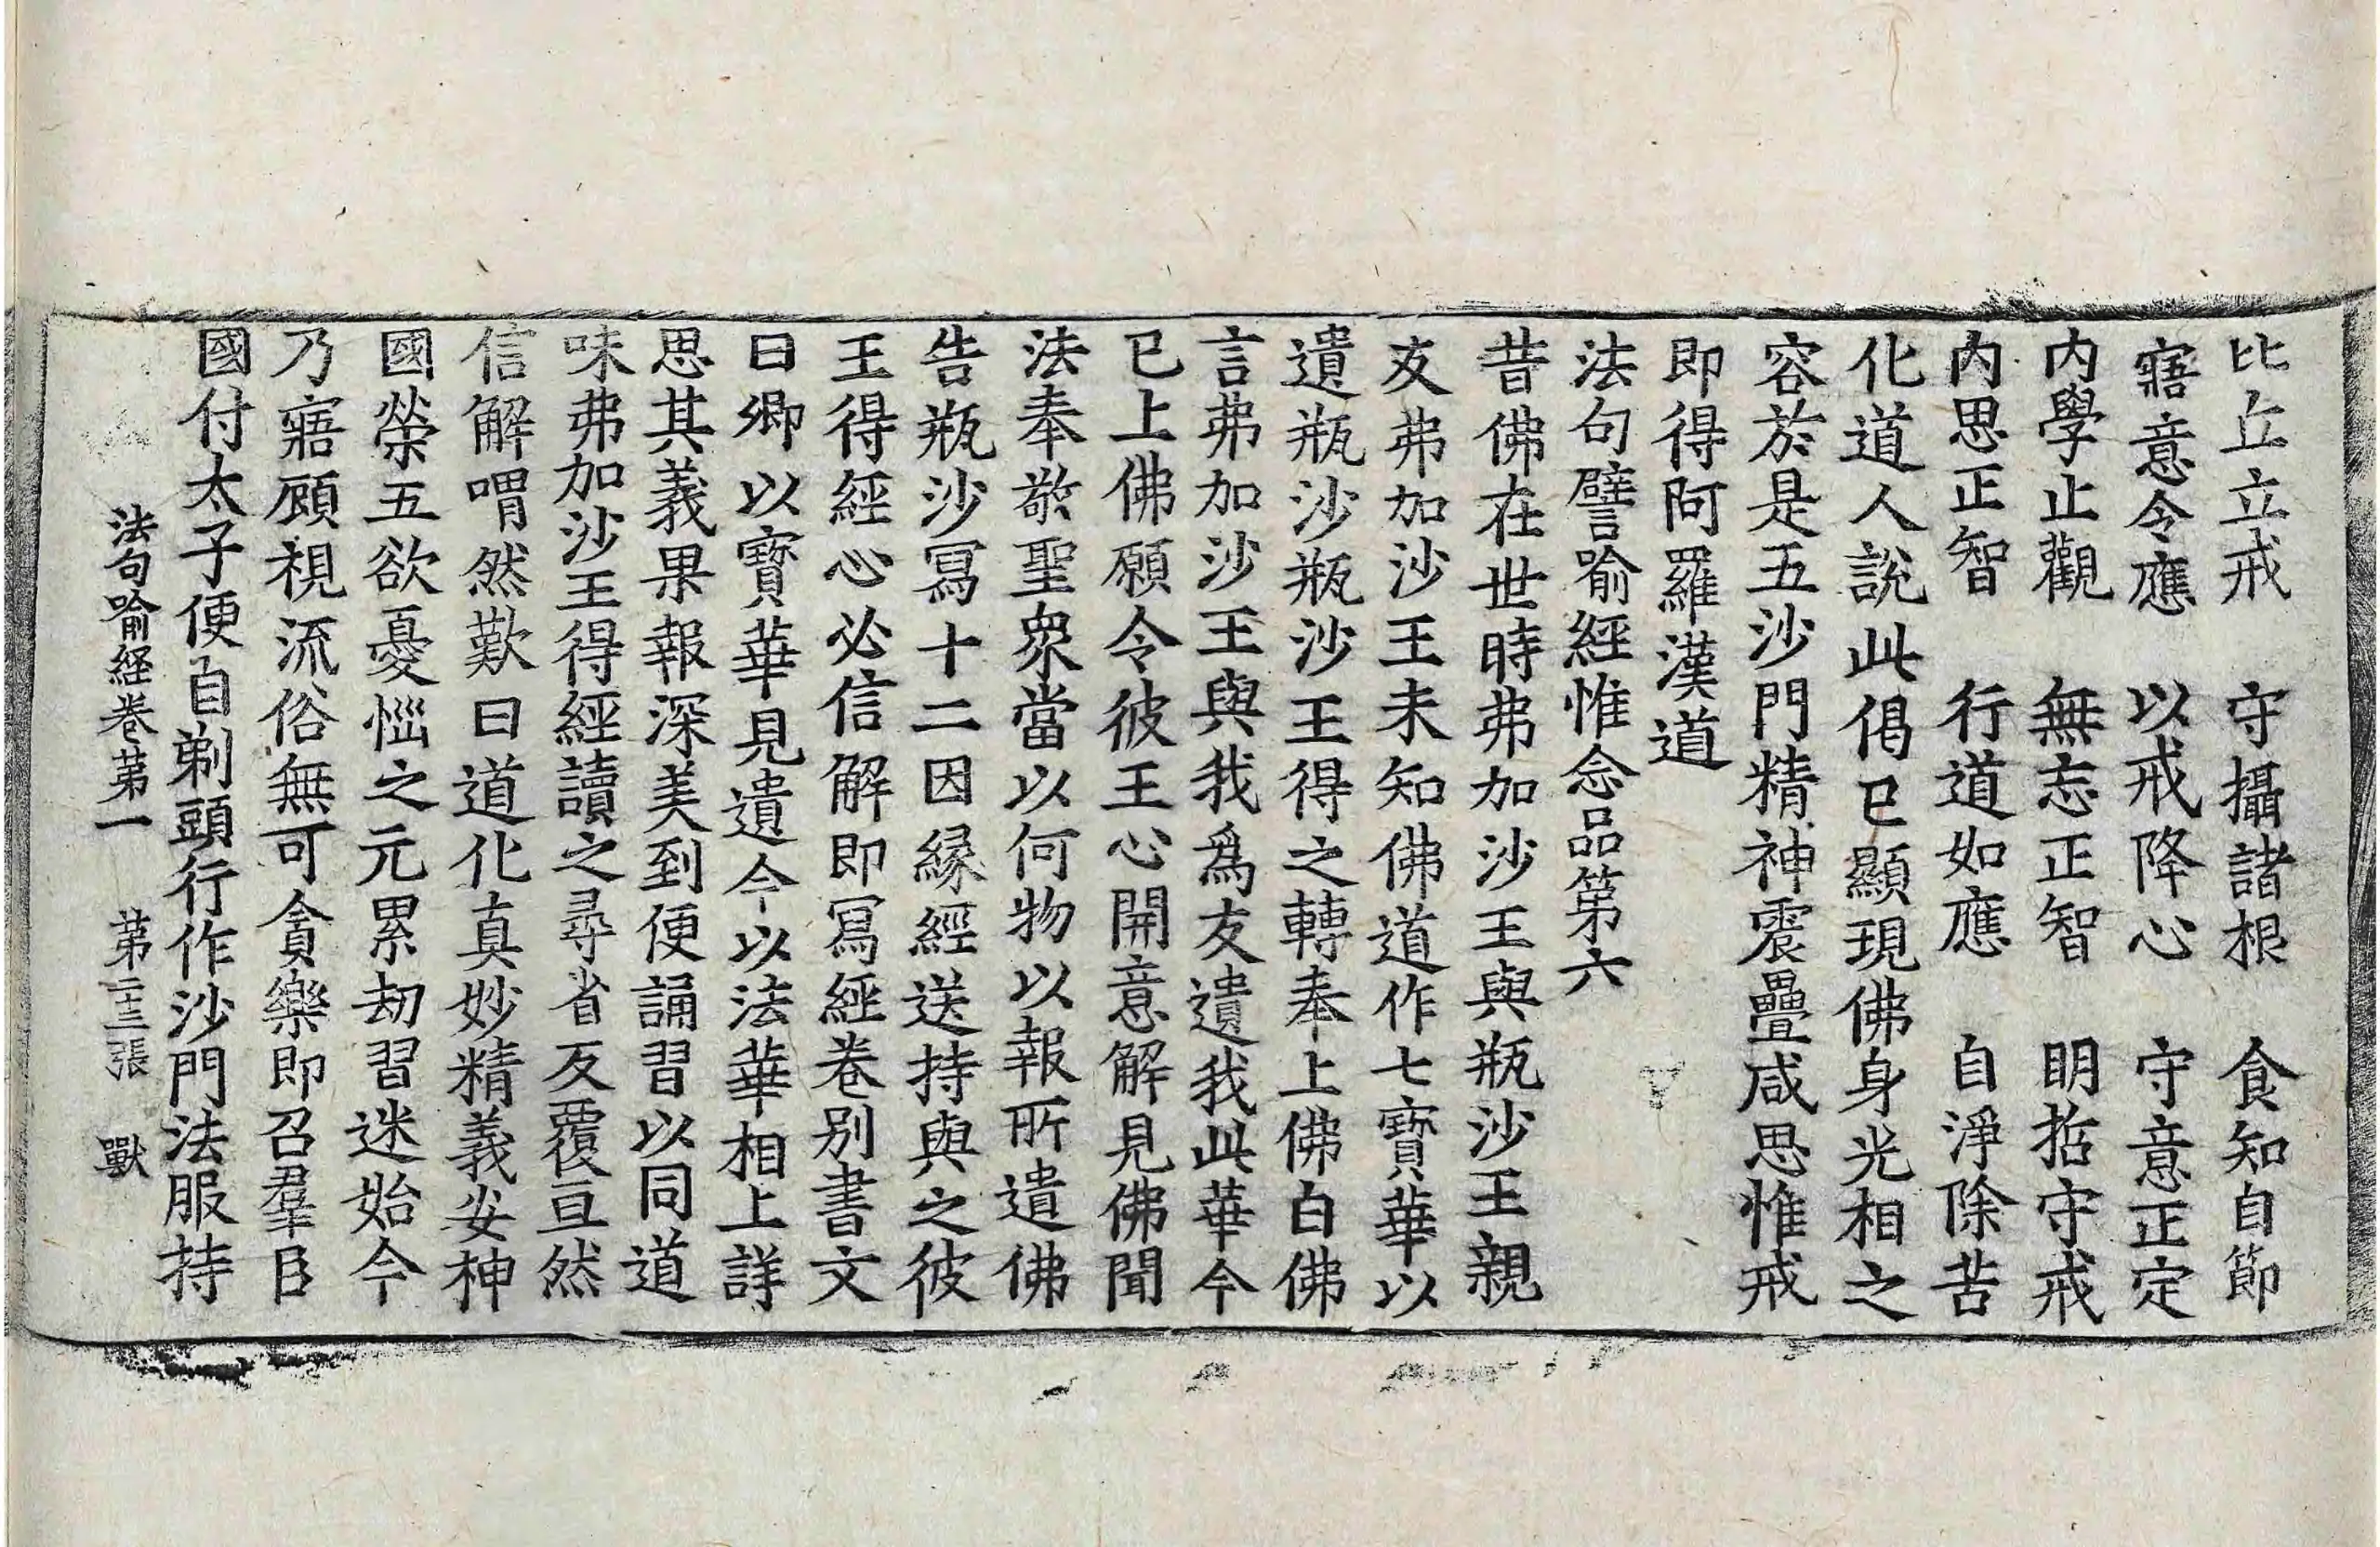 比丘立戒　守攝諸根　食知自節
寤意令應　以戒降心　守意正定
內學止觀　無忘正智　明哲守戒
內思正智　行道如應　自淨除苦
化道人說此偈已顯現佛身光相之
容於是五沙門精神震疊咸思惟戒
即得阿羅漢道
法句譬喻經惟念品第六
昔佛在世時弗加沙王與瓶沙王親
友弗加沙王未知佛道作七寶華以
遺瓶沙瓶沙王得之轉奉上佛白佛
言弗加沙王與我爲友遺我此華今
已上佛願令彼王心開意解見佛聞
法奉敬聖衆當以何物以報所遺佛
告瓶沙寫十二因緣經送持與之彼
王得經心必信解即寫經卷別書文
曰卿以寶華見遺今以法華相上詳
思其義果報深美到便誦習以同道
味弗加沙王得經讀之尋省反覆亘然
信解喟然歎曰道化真妙精義安神
國榮五欲憂惱之元累劫習迷始今
乃寤顧視流俗無可貪樂即召羣臣
國付太子便自剃頭行作沙門法服持
法句喻經卷第一　第二十三張　獸